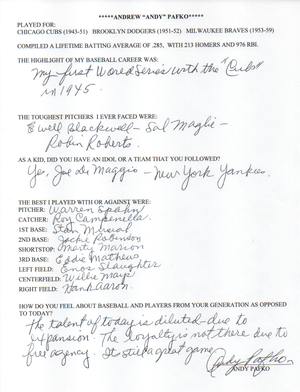 *****ANDREW "ANDY" PAFKO*****
PLAYED FOR:
CHICAGO CUBS (1943-51) BROOKLYN DODGERS (1951-52) MILWAUKEE BRAVES (1953-59)
COMPILED A LIFETIME BATTING AVERAGE OF .285, WITH 213 HOMERS AND 976 RBI.
THE HIGHLIGHT OF MY BASEBALL CAREER WAS:
My first World Series with the "Cubs"
in 1945.
THE TOUGHEST PITCHERS I EVER FACED WERE:
Ewell Blackwell - Sal Maglie -
Robin Roberts.
AS A KID, DID YOU HAVE AN IDOL OR A TEAM THAT YOU FOLLOWED?
Yes, Joe Di Maggio - New York Yankees.
THE BEST I PLAYED WITH OR AGAINST WERE:
PITCHER: Warren Spahn
CATCHER: Roy Campenella
1ST BASE: Stan Musial
2ND BASE: Jackie Robinson
SHORTSTOP: Marty Marion
3RD BASE: Eddie Mathews
LEFT FIELD: Enos Slaughter
CENTERFIELD: Willie Mays
RIGHT FIELD: Hank Aaron.
HOW DO YOU FEEL ABOUT BASEBALL AND PLAYERS FROM YOUR GENERATION AS OPPOSED
TO TODAY?
The talent of today is diluted - due to
expansion. The loyalty is not there due to
free agency. It still a great game.
Andy Pafko
ANDY PAFKO